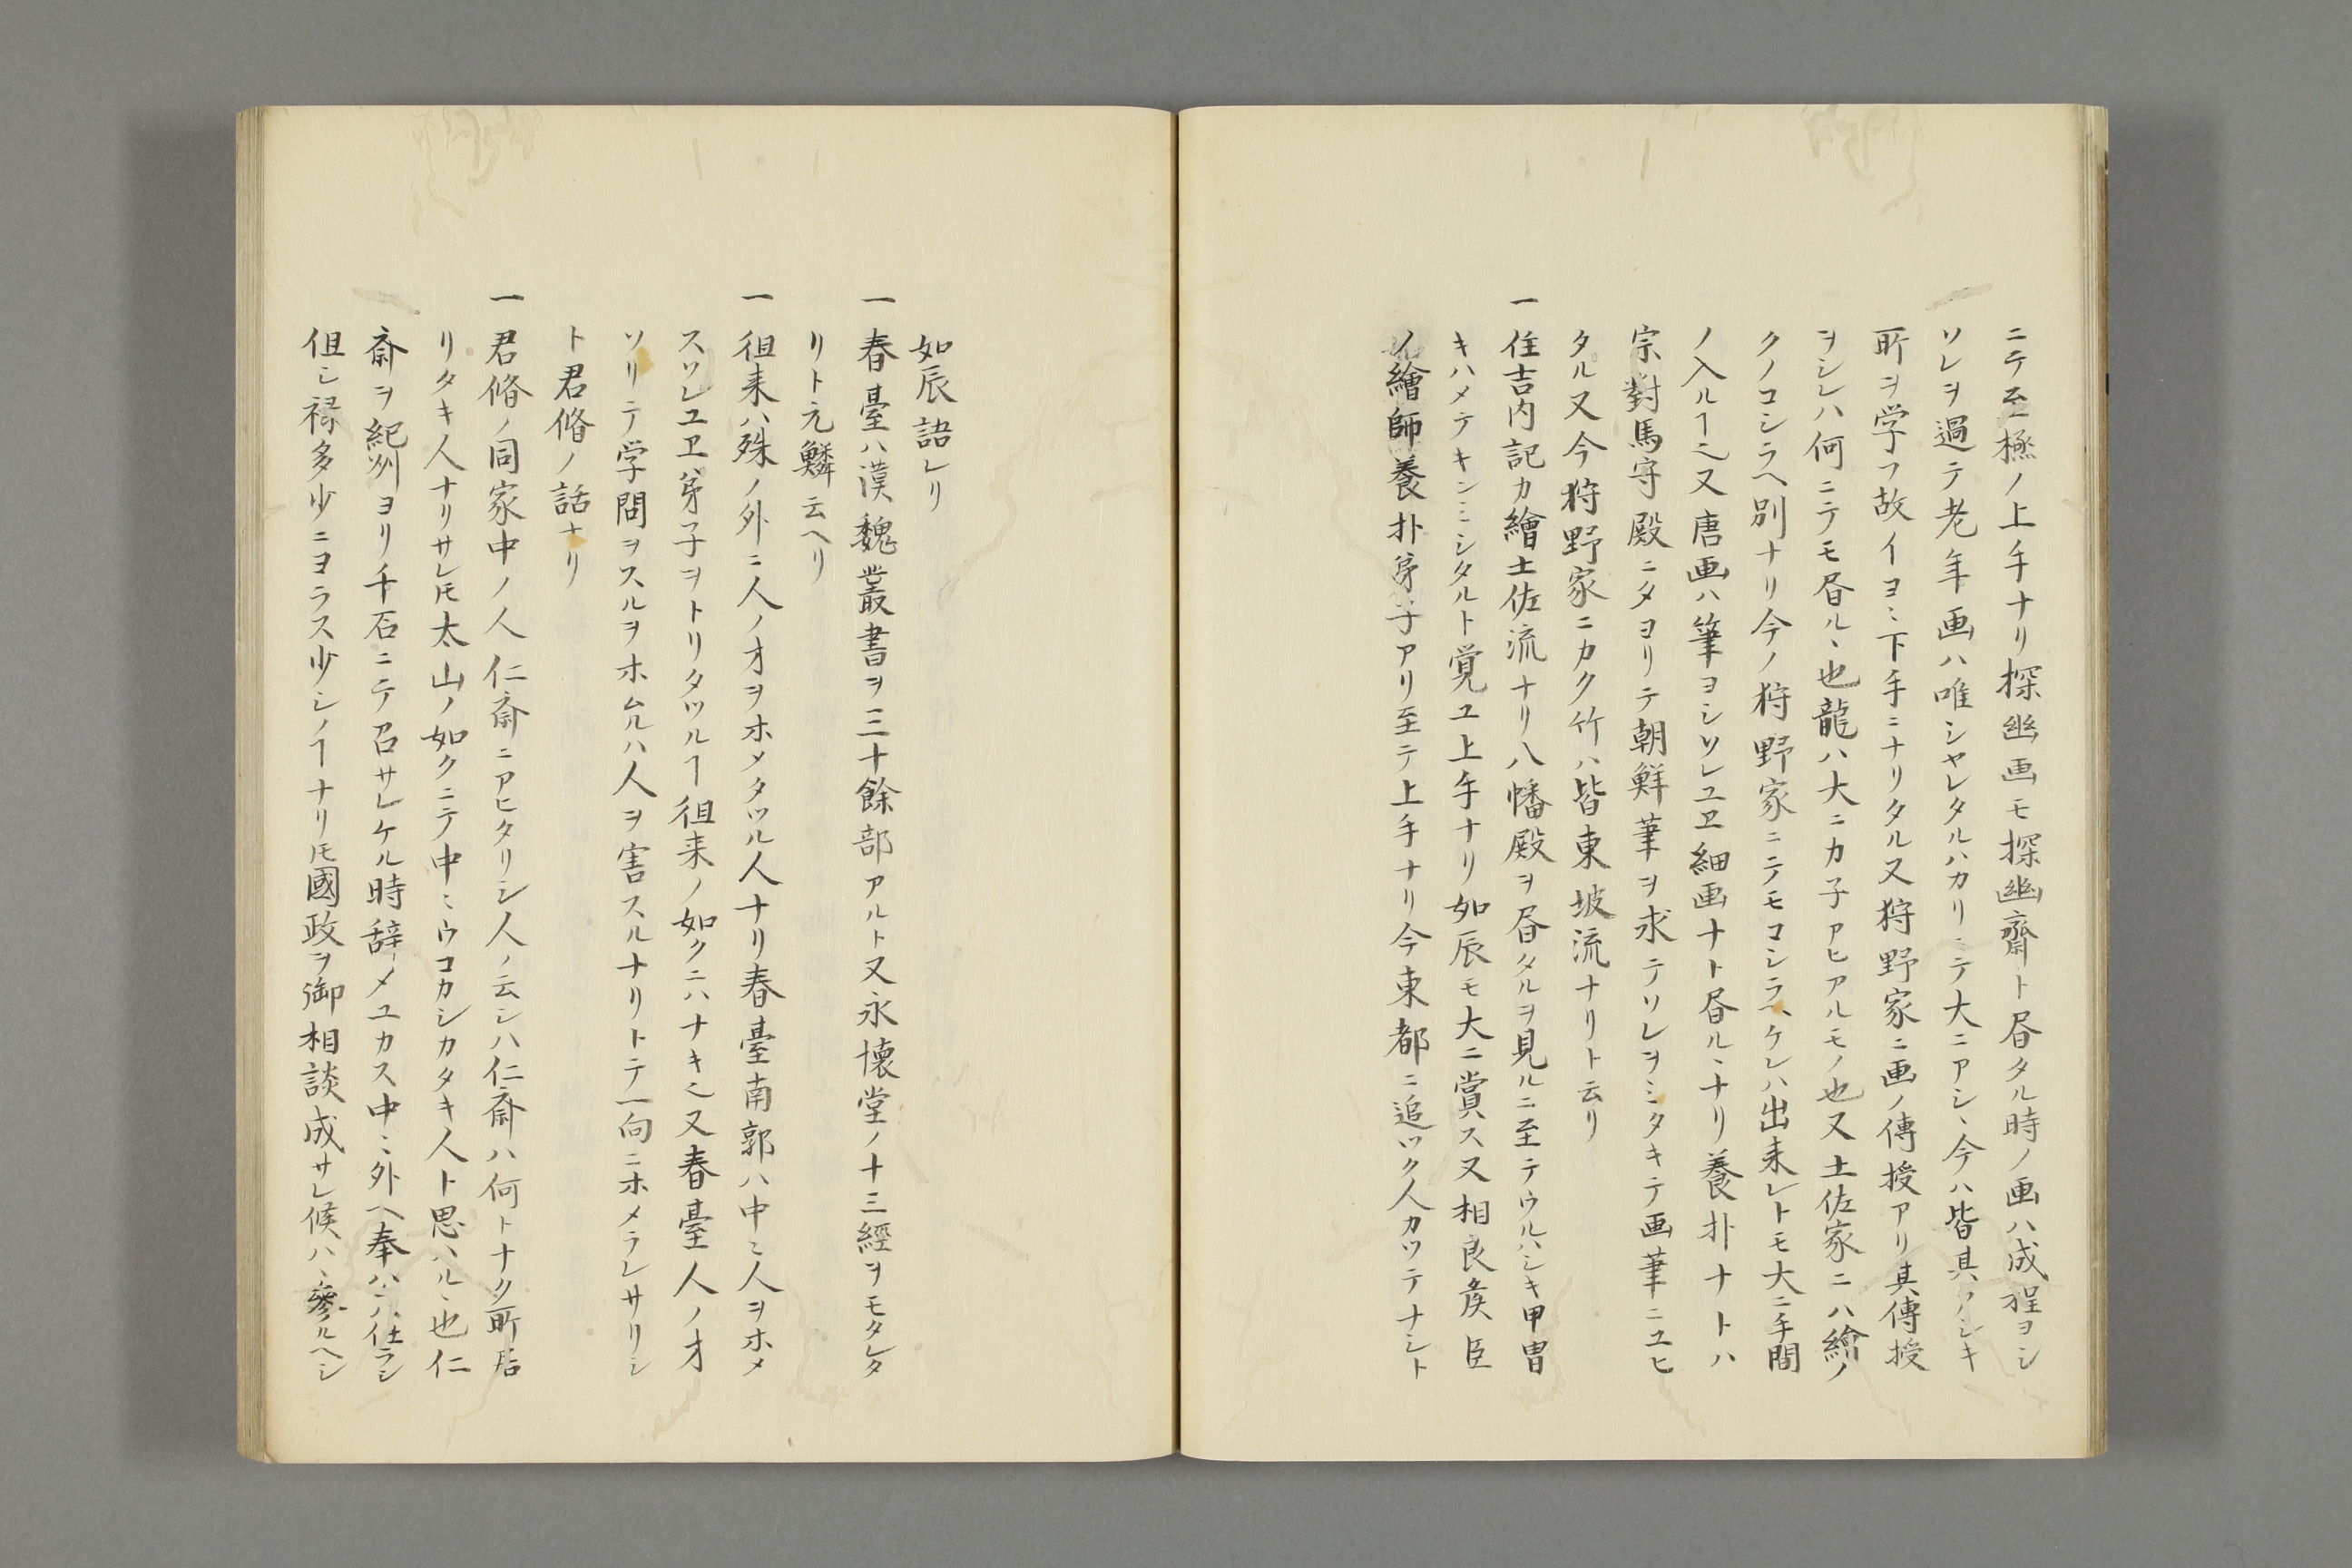 ニテ至極ノ上手ナリ探幽画モ探幽齋ト昼タル時ノ画ハ成程ヨシ
ソレヲ過テ老年画ハ唯シヤレタルハカリニテ大ニアシヽ今ハ皆其アシキ
所ヲ学フ故イヨヽ下手ニナリタル又狩野家ニ画ノ傳授アリ其傳授
ヲシレハ何ニテモ昼ルヽ也龍ハ大ニカ子アヒアルモノ也又土佐家ニハ繪ノ
クノコシラヘ別ナリ今ノ狩野家ニテモコシラヘケレハ出来レトモ大ニ手間
ノ入ルヿ也又唐画ハ筆ヨシソレユヱ細画ナト昼ルヽナリ養朴ナトハ
宗對馬守殿ニタヨリテ朝鮮筆ヲ求テソレヲミタキテ画筆ニユヒ
タル又今狩野家ニカク竹ハ皆東坡流ナリト云リ
一住吉内記カ繪土佐流ナリ八幡殿ヲ昼タルヲ見ルニ至テウルハシキ甲冑
キハメテキンミシタルト覚ユ上手ナリ如辰モ大ニ賞ス又相良矦臣
ノ繪師養朴弟子アリ至テ上手ナリ今東都ニ追ツク人カツテナシト
如辰語レリ
一春臺ハ漢魏叢書ヲ三十餘部アルト又永懐堂ノ十三經ヲモタレタ
リト元鱗云ヘリ
一徂来ハ殊ノ外ニ人ノ才ヲホメタツル人ナリ春臺南郭ハ中ヽ人ヲホメ
スソレユヱ弟子ヲトリタツルヿ徂来ノ如クニハナキ也又春臺人ノ才
ソリテ学問ヲスルヲホムルハ人ヲ害スルナリトテ一向ニホメラレサリシ
ト君脩ノ話ナリ
一君脩ノ同家中ノ人仁斎ニアヒタリシ人ノ云シハ仁斎ハ何トナク所居
リタキ人ナリサレ𪜈太山ノ如クニテ中ヽウコカシカタキ人ト思ハルヽ也仁
斎ヲ紀州ヨリ千石ニテ召サレケル時辞メユカス中ヽ外ヘ奉ハハ仕ラシ
但シ禄多少ニヨラス少シノヿナリ𪜈國政ヲ御相談成サレ候ハヽ參ルヘシ